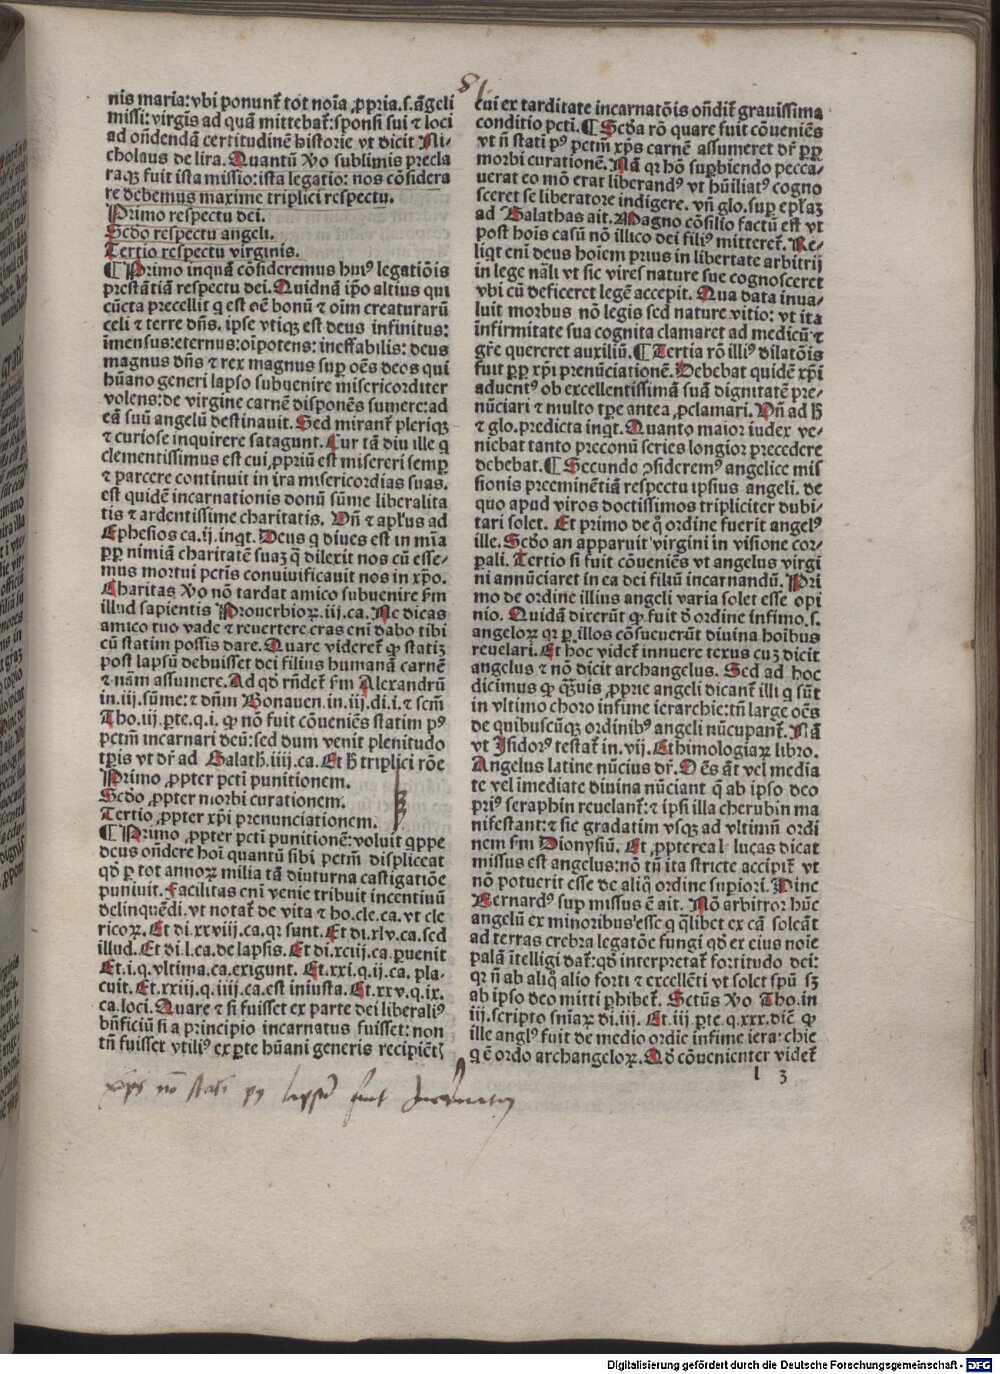 81
nis maria: vbi ponunt̃ tot noĩa ꝓpria.s.ãgeli
missi: virgĩs ad quã mittebat̃: sponsi sui ⁊ loci
ad oñdendã certitudinẽ historie vt dicit Ni-
cholaus de lira. Quantũ ṽo sublimis precla
raqȝ fuit ista missio: ista legatio: nos cõsidera
re debemus maxime triplici respectu.
Primo respectu dei.
Scd̃o respectu angeli.
Tertio respectu virginis.
¶ Primo inquã cõsideremus huiꝰ legatiõis
prestãtiã respectu dei. Quidnã ip̃o altius qui
cũcta precellit q̃ est oẽ bonũ ⁊ oĩm creaturarũ
celi ⁊ terre dñs. ipse vtiqȝ est deus infinitus:
ĩmensus: eternus: oĩpotens: ineffabilis: deus
magnus dñs ⁊ rex magnus sup oẽs deos qui
hũano generi lapso subuenire misericorditer
volens: de virgine carnẽ disponẽs sumere: ad
eã suũ angelũ destinauit. Sed mirant̃ pleriqȝ
⁊ curiose inquirere satagunt. Cur tã diu ille q̃
clementissimus est cui ꝓpriũ est misereri semꝑ
⁊ parcere continuit in ira misericordias suas.
est quidẽ incarnationis donũ sũme liberalita
tis ⁊ ardentissime charitatis. Vñ ⁊ apľus ad
Ephesios ca.ij.inqt. Deus q̃ diues est in mĩa
ꝓp̃ nimiã charitatẽ suaȝ q̃ dilexit nos cũ esse-
mus mortui pctĩs conuiuificauit nos in xp̃o.
Charitas ṽo nõ tardat amico subuenire s̃m
illud sapientis Prouerbioꝝ.iij.ca. Ne dicas
amico tuo vade ⁊ reuertere cras eni dabo tibi
cũ statim possis dare. Quare videret̃ ꝙ statiȝ
post lapsũ debuisset dei filius humanã carnẽ
⁊ nãm assumere. Ad qd̃ rñdet̃ s̃m Alexandrũ
in.iij.sũme: ⁊ dñm Bonauen.in.iij.di.i.⁊ scm̃
Tho.iij.ꝑte.q.i. ꝙ nõ fuit cõueniẽs statim pꝰ
pctm̃ incarnari deũ: sed dum venit plenitudo
tꝑis vt dr̃ ad Galath.iiij.ca. Et h̃ triplici rõe
Primo ꝓpter pctĩ punitionem.
Scd̃o ꝓpter morbi curationem.
Tertio ꝓpter xp̃i prenunciationem.
¶ Primo ꝓpter pctĩ punitionẽ: voluit q̃ppe
deus oñdere hoĩ quantũ sibi pctm̃ displiceat
qd̃ ꝑ tot annoꝝ milia tã diuturna castigatiõe
puniuit. Facilitas enĩ venie tribuit incentiuũ
delinquẽdi. vt notat̃ de vita ⁊ ho.cle.ca.vt cle
ricoꝝ. Et di.xxviij.ca.qꝛ sunt. Et di.xlv.ca.sed
illud. Et di.l.ca.de lapsis. Et di.xciij.ca.ꝑuenit
Et.i.q.vltima.ca.exigunt. Et.xxi.q.ij.ca.pla-
cuit. Et.xxiij.q.iiij.ca.est iniusta. Et.xxv.q.ix.
ca.loci. Quare ⁊ si fuisset ex parte dei liberaliꝰ
bñficiũ si a principio incarnatus fuisset: non
tñ fuisset vtiliꝰ ex ꝑte hũani generis recipiẽtis
cui ex tarditate incarnatõis oñdit̃ grauissima
conditio pcti. ¶ Scd̃a rõ quare fuit cõueniẽs
vt ñ stati pꝰ pctm̃ xp̃s carnẽ assumeret dr̃ ꝓp̃
morbi curationẽ. Nã qꝛ hõ suꝑbiendo pecca-
uerat eo mõ erat liberandꝰ vt hũiliatꝰ cogno
sceret se liberatore indigere. vñ glo. sup epľaȝ
ad Galathas ait. Magno cõsilio factũ est vt
post hoĩs casũ nõ illico dei filiꝰ mitteret̃. Re-
liqt enĩ deus hoiem prius in libertate arbitrij
in lege nãli vt sic vires nature sue cognosceret
vbi cũ deficeret legẽ accepit. Qua data inua-
luit morbus nõ legis sed nature vitio: vt ita
infirmitate sua cognita clamaret ad medicũ ⁊
gr̃e quereret auxiliũ. ¶ Tertia rõ illiꝰ dilatõis
fuit ꝓp̃ xp̃i prenũciationẽ. Debebat quidẽ xp̃i
aduentꝰ ob excellentissimã suã dignitatẽ pre-
nũciari ⁊ multo tꝑe antea ꝓclamari. Vñ ad h̃
⁊ glo.predicta inqt. Quanto maior iudex ve-
niebat tanto preconũ series longior precedere
debebat. ¶ Secundo ꝯsideremꝰ angelice mis
sionis preeminẽtiã respectu ipsius angeli. de
quo apud viros doctissimos tripliciter dubi-
tari solet. Et primo de q̃ ordine fuerit angelꝰ
ille. Scd̃o an apparuit virgini in visione cor-
ꝑali. Tertio si fuit cõueniẽs vt angelus virgi
ni annũciaret in ea dei filiũ incarnandũ. Pri
mo de ordine illius angeli varia solet esse opi
nio. Quidã dixerũt ꝙ fuit d̃ ordine infimo.s.
angeloꝝ qꝛ ꝑ illos cõsueuerũt diuina hoĩbus
reuelari. Et hoc videt̃ innuere texus cuȝ dicit
angelus ⁊ nõ dicit archangelus. Sed ad hoc
dicimus ꝙ q̃uis ꝓprie angeli dicant̃ illi q̃ sũt
in vltimo choro infime ierarchie: tñ large oẽs
de quibuscũqȝ ordinibꝰ angeli nũcupant̃. Nã
vt Isidorꝰ testat̃ in.vij. Ethimologiaꝝ libro.
Angelus latine nũcius dr̃. Oẽs ãt vel media
te vel ĩmediate diuina nũciant q̃ ab ipso deo
priꝰ seraphin reuelant̃: ⁊ ipsi illa cherubin ma
nifestant: ⁊ sic gradatim vsqȝ ad vltimũ ordi
nem s̃m Dionysiũ. Et ꝓpterea l lucas dicat
missus est angelus: nõ tñ ita stricte accipit̃ vt
nõ potuerit esse de aliq̃ ordine supiori. Hinc
Bernardꝰ sup missus ẽ ait. Nõ arbitror hũc
angelũ ex minoribus esse q̃ q̃libet ex cã soleãt
ad terras crebra legatõe fungi qd̃ ex eius noĩe
palã ĩtelligi dat̃: qd̃ interpretat̃ fortitudo dei:
qꝛ ñ ab aliq̃ alio forti ⁊ excellẽti vt solet spũ sȝ
ab ipso deo mitti ꝑhibet̃. Sctũs ṽo Tho.in
iij.scripto sñiaꝝ di.iij. Et.iij.ꝑte.q.xxx.dicẽ ꝙ
ille anglꝰ fuit de medio ordĩe infime ierarchie
q̃ ẽ ordo archangeloꝝ. Qd̃ cõuenienter videt̃
l 3
xp̃s nõ stati pꝰ lapsũ fuit Incarnatus
Digitalisierung gefördert durch die Deutsche Forschungsgemeinschaft - DFG